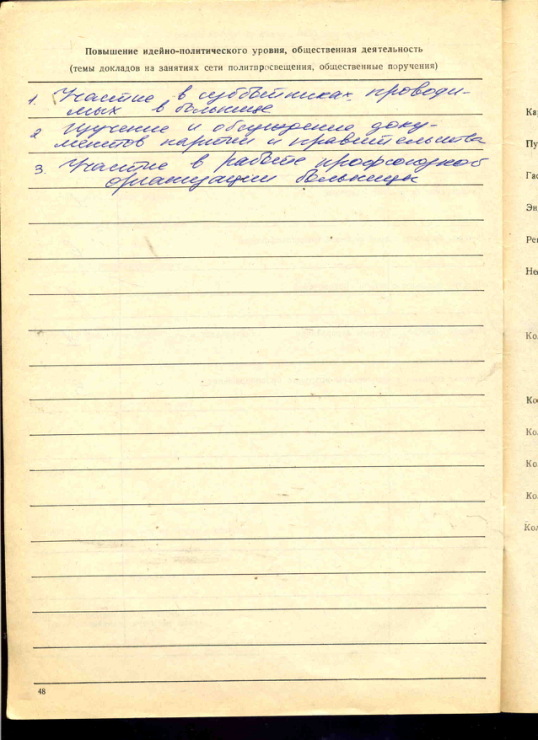 Повышение идейно-политического уровня, общественная деятельность
(темы докладов на занятиях сети политпросвещения, общественные поручения)
1. Участие в субботниках проводи-
мых в больнице
2. Изучение и обсуждение доку-
ментов партии и правительства
3. Участие в работе профсоюзной
организации больницы
48
Ка
Пу
Га
Эн
Ре
Не
Ко
Ко
Ко
Ко
Ко
Ко